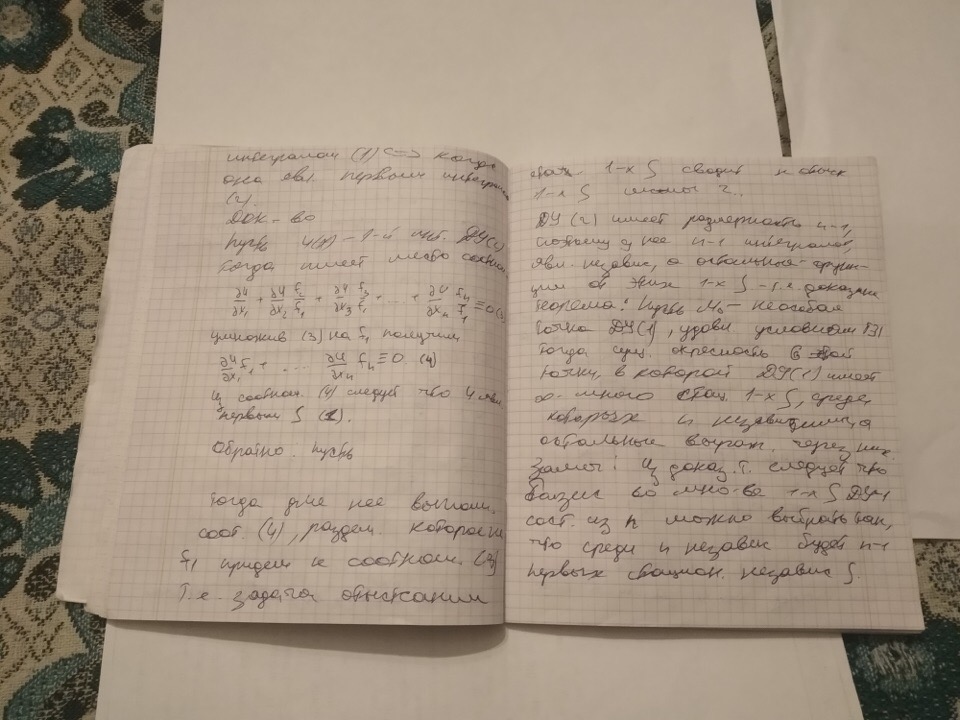 интегралом (1) <=> когда
она явл. первым интегралом
(2).
Док-во
Пусть φ(x) – 1-й инт. ДУ(2)
Тогда имеет место соотнош.
∂φ/∂x₁ + ∂φ/∂x₂ f₂/f₁ + ∂φ/∂x₃ f₃/f₁ + ... + ∂φ/∂xₙ fₙ/f₁ ≡ 0 (3)
умножив (3) на f₁ получим
∂φ/∂x₁ f₁ + .... ∂φ/∂xₙ fₙ ≡ 0. (4)
Из соотнош. (4) следует что φ явл.
первым ∫ (1).
Обратно. Пусть
Тогда для нее выполн.
соот. (4), раздел. которое на
f₁ придем к соотнош. (3)
Т.е. задача отыскания
стац. 1-х ∫ сводит к отыск
1-х ∫ 2.
ДУ(2) имеет размерность n-1,
поэтому у нее n-1 интегралов,
явл. независ, а остальные функ-
ции от этих 1-х ∫ - т.е. доказана
теорема: Пусть M₀ – неособая
точка ДУ(1), удовл условиям
тогда сущ. окресность этой
точки, в которой ДУ(1) имеет
∞ много стац. 1-х ∫, среди
которых n независимых а
остальные выраж. через них.
Замеч: Из доказ. т. следует что
базис во мно-ве 1-х ∫
сост. из n можно выбрать так,
что среди n независ будет n-1
первых стацион. независ ∫.